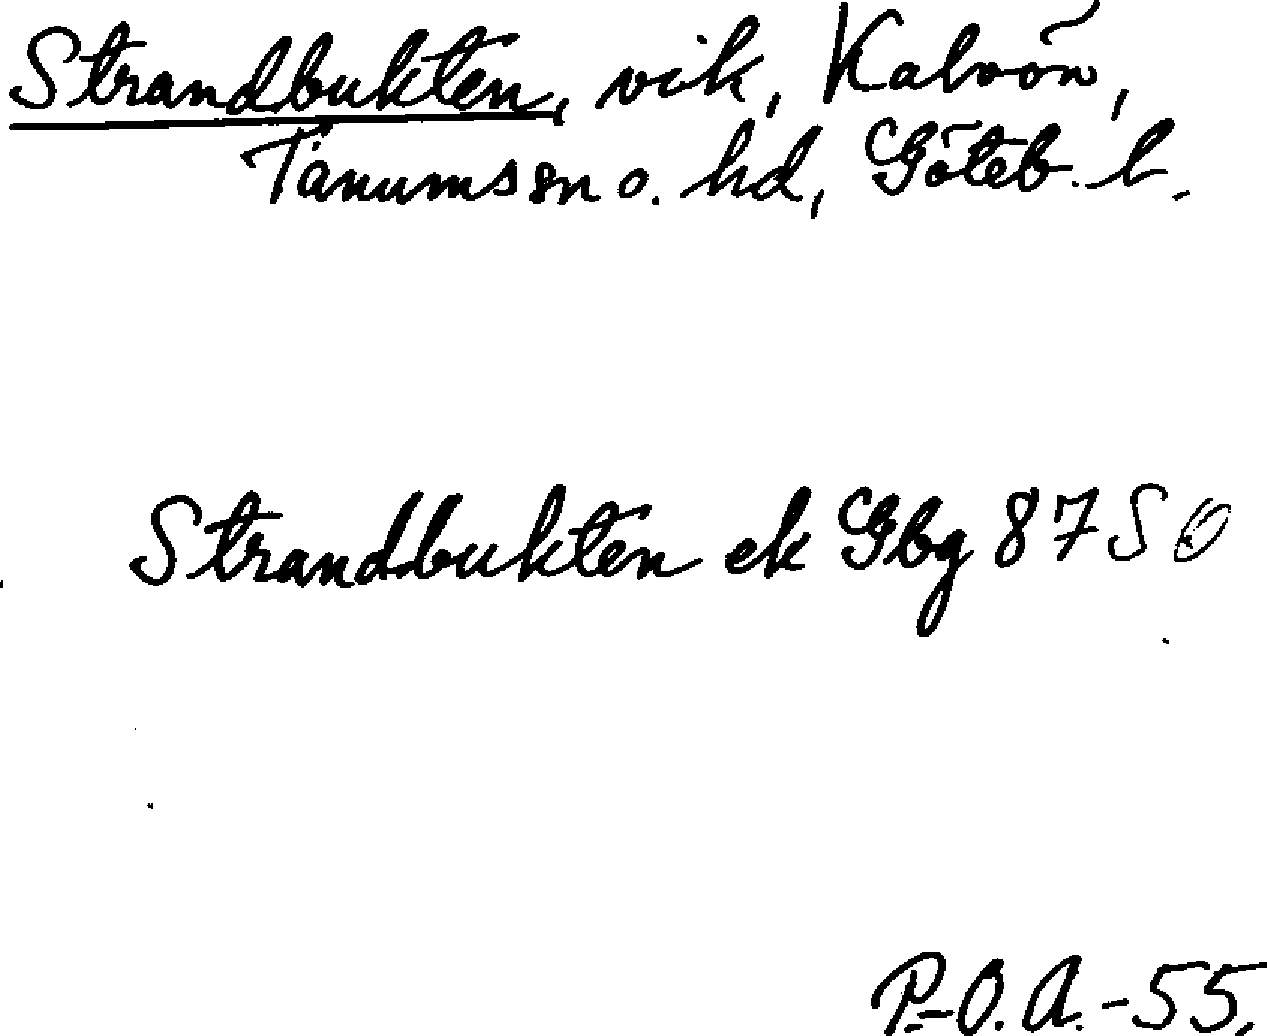 Strandbukten, vik, Kalvön,
Tanums sn o. hd, Göteb. l.
Strandbukten ek Gbg 87 SO
P-O.A.-55.